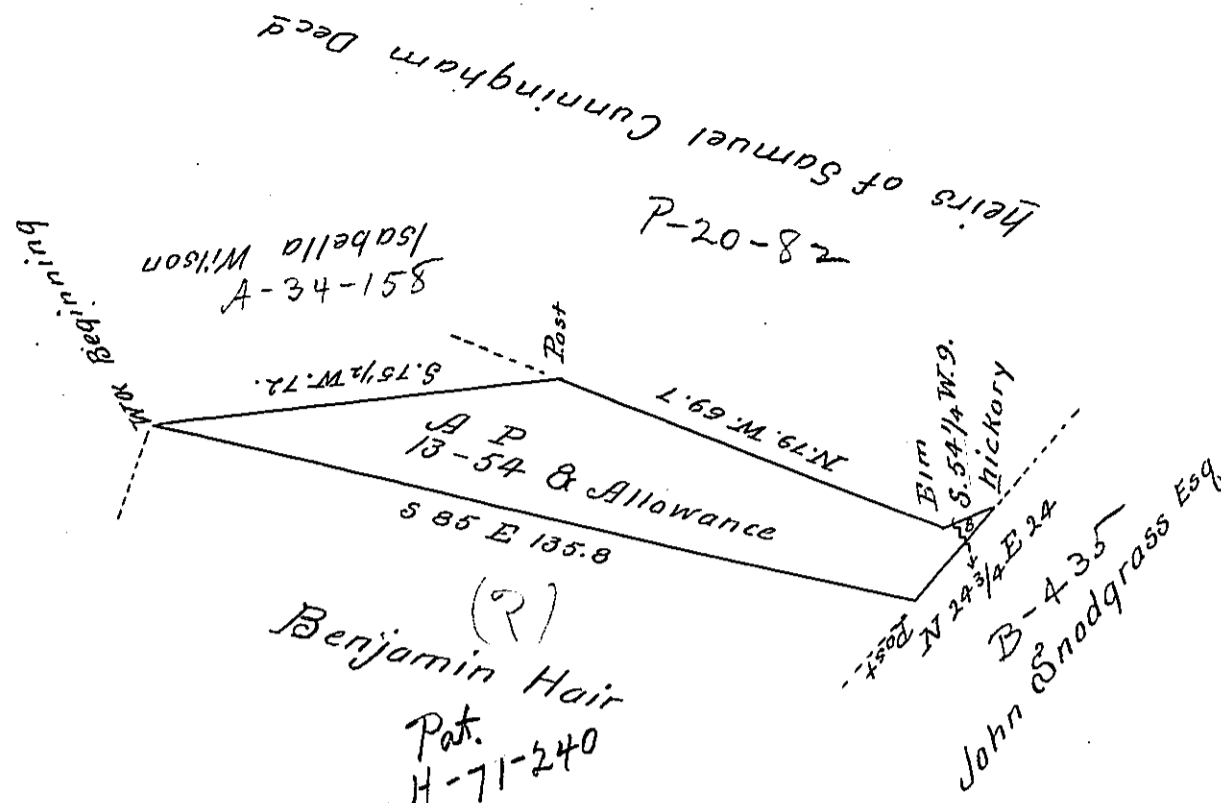 heirs of Samuel Cunningham Decd
P-20-82
Isabella Wilson
A-34-158
Wo Beginning
S. 75 1/2 W. 72.
Post
N. 79. W. 69.7
Elm
S. 54 1/4 W. 9.
hickory
A P
13-54 & Allowance
S 85 E 135.8
N 24 3/4 E 24
Post
B-4-35
John Snodgrass Esq
(R)
Benjamin Hair
Pat.
H-71-240